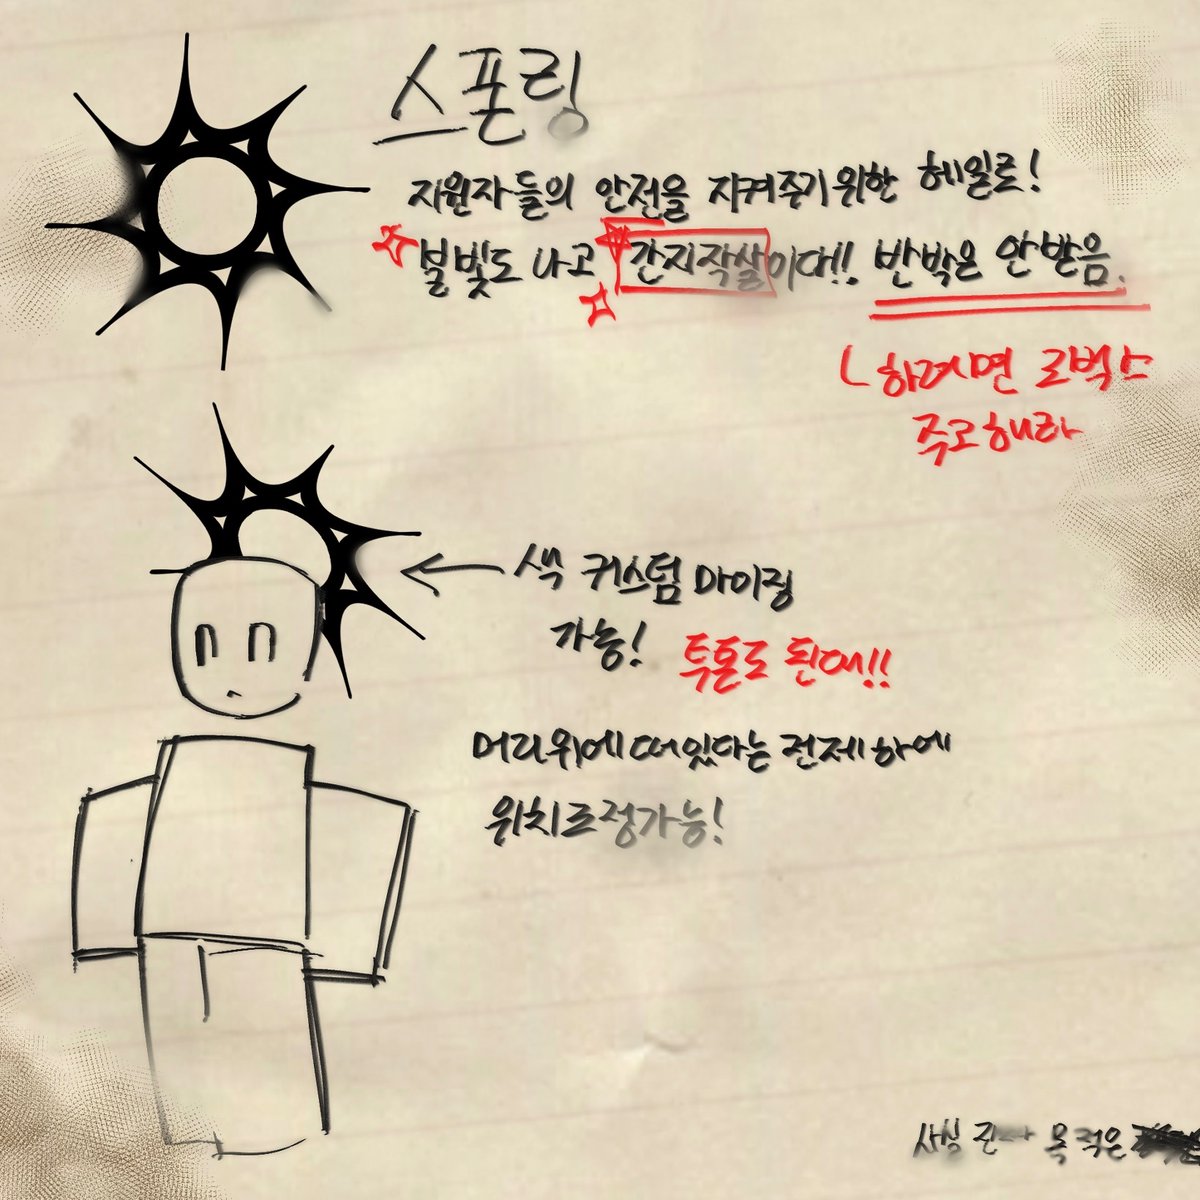 스폰링
지원자들의 안전을 지켜주기위한 헤일로!
불빛도 나고 간지작살이다!! 반박은 안받음.
ㄴ하려면 로벅스
주고해라
색 커스텀마이징
가능! 투톤도 된대!!
머리위에 떠있다는 전제하에
위치조정가능!
사실 진짜 목적은